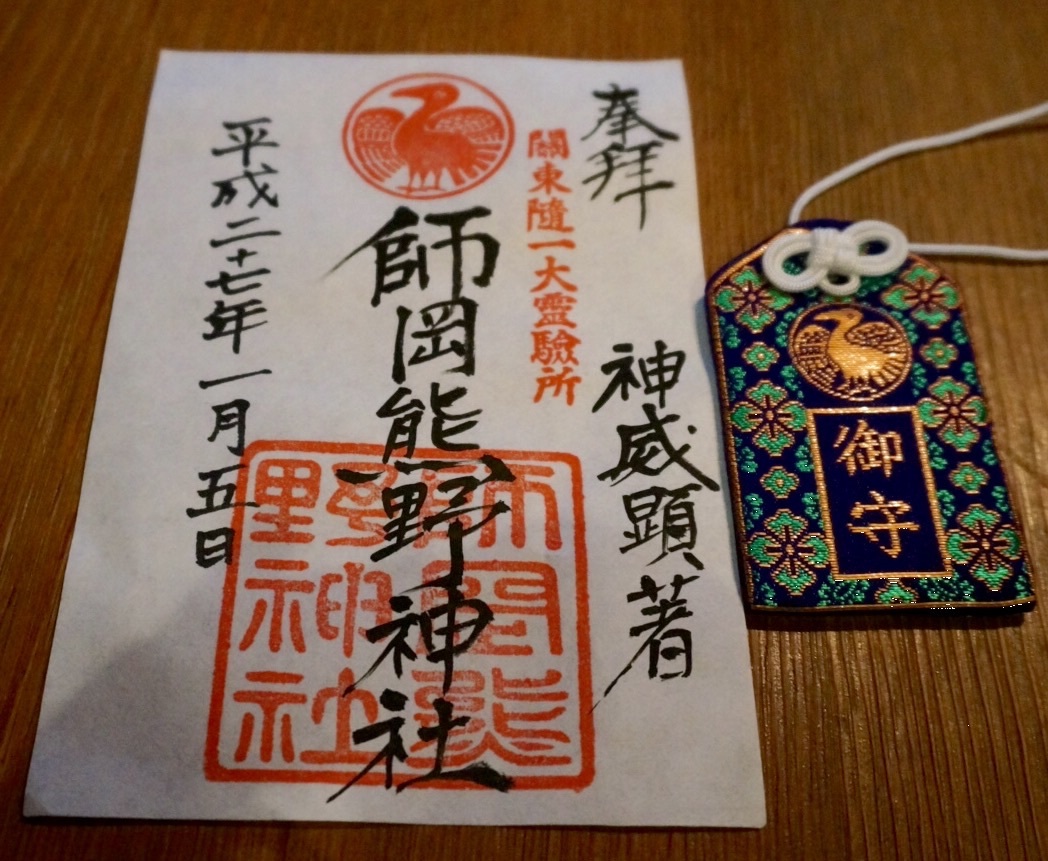 奉拝
神威顕著
關東隨一大霊驗所
師岡熊野神社
師岡熊野神社
平成二十七年一月五日
御守